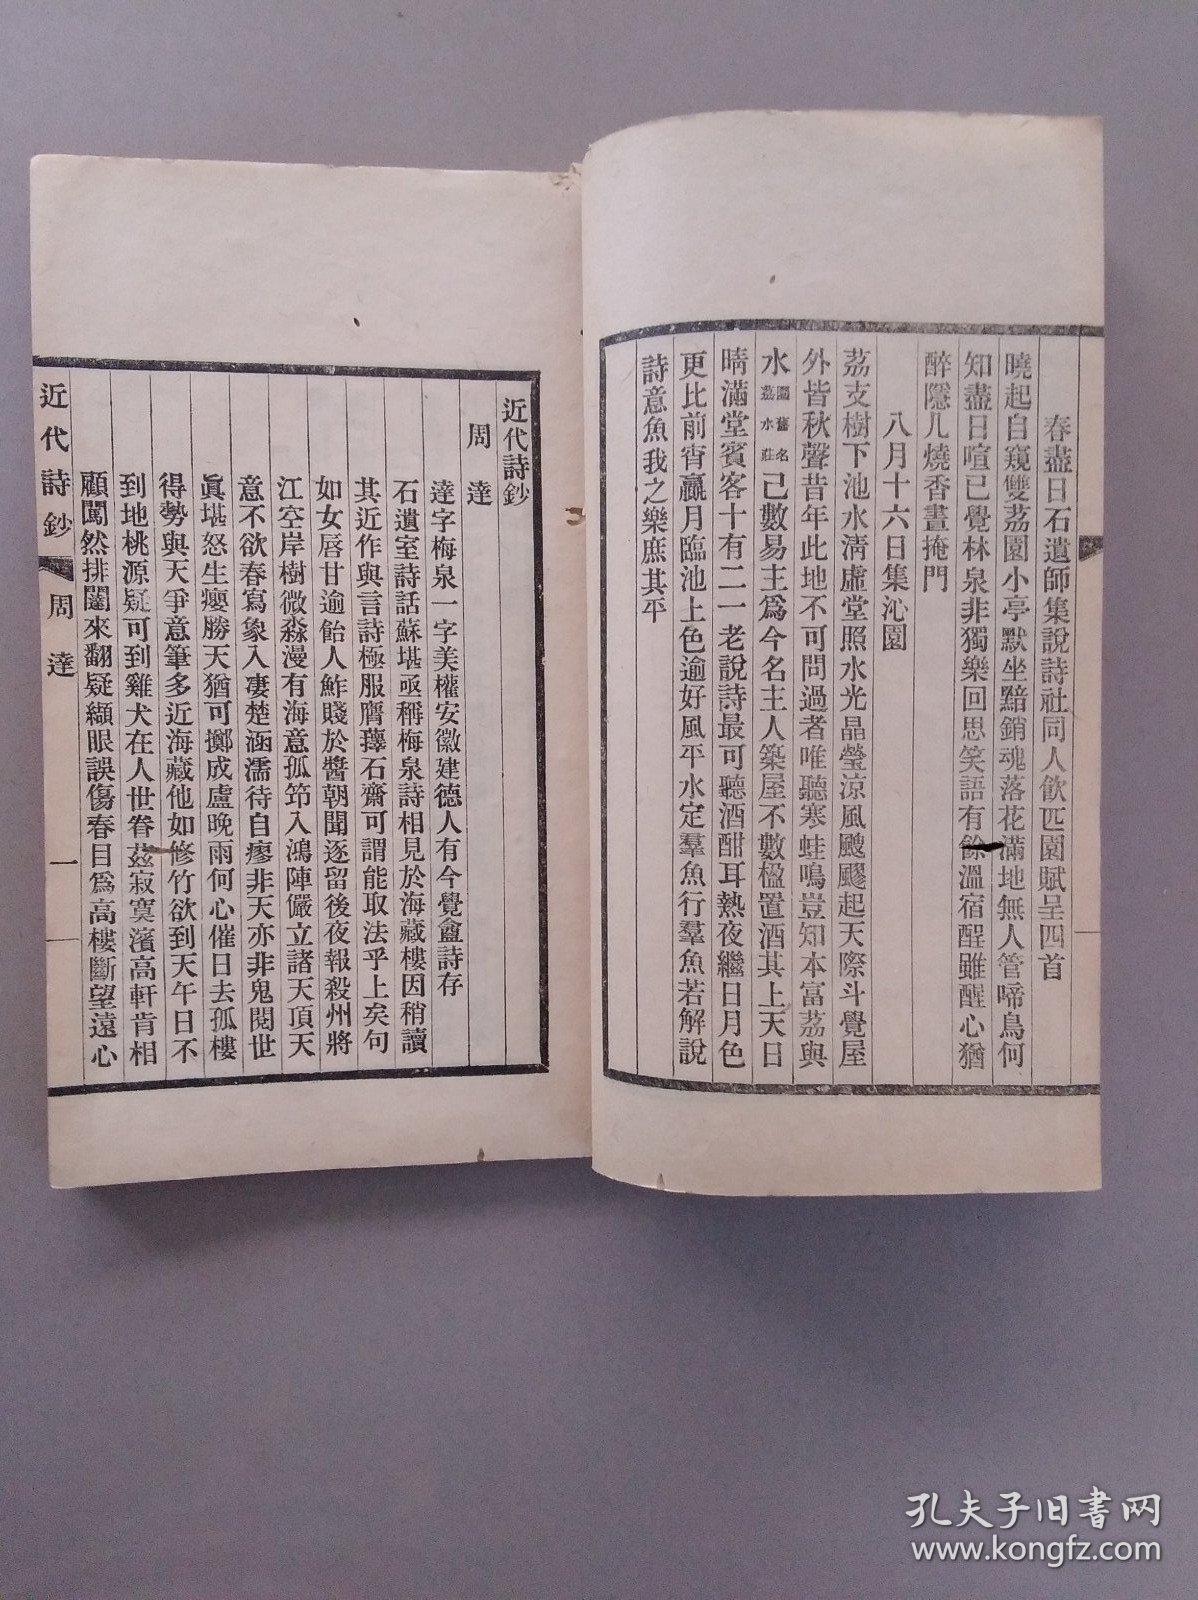 春盡日石遺師集說詩社同人飲匹園賦呈四首
曉起自窺雙荔園小亭默坐黯銷魂落花滿地無人管啼鳥何
知盡日喧已覺林泉非獨樂回思笑語有餘溫宿酲雖醒心猶
醉隱几燒香晝掩門
八月十六日集沁園
荔支樹下池水清虛堂照水光晶瑩涼風颼飂起天際斗覺屋
外皆秋聲昔年此地不可問過者唯聽寒蛙鳴豈知本富荔與
水園舊名荔水莊已數易主爲今名主人築屋不數楹置酒其上天日
晴滿堂賓客十有二一老說詩最可聽酒酣耳熱夜繼日月色
更比前宵贏月臨池上色逾好風平水定羣魚行羣魚若解說
詩意魚我之樂庶其平
近代詩鈔
周達
達字梅泉一字美權安徽建德人有今覺盦詩存
石遺室詩話蘇堪亟稱梅泉詩相見於海藏樓因稍讀
其近作與言詩極服膺蘀石齋可謂能取法乎上矣句
如女唇甘逾飴人鮓賤於醬朝聞逐留後夜報殺州將
江空岸樹微淼漫有海意孤笻入鴻陣儼立諸天頂天
意不欲春寫象入凄楚涵濡待自瘳非天亦非鬼閱世
眞堪怒生癭勝天猶可擲成盧晚雨何心催日去孤樓
得勢與天爭意筆多近海藏他如修竹欲到天午日不
到地桃源疑可到雞犬在人世眷茲寂寞濱高軒肯相
顧闖然排闥來翻疑纈眼誤傷春目爲高樓斷望遠心
近代詩鈔 周達 一
孔夫子旧書网
www.kongfz.com